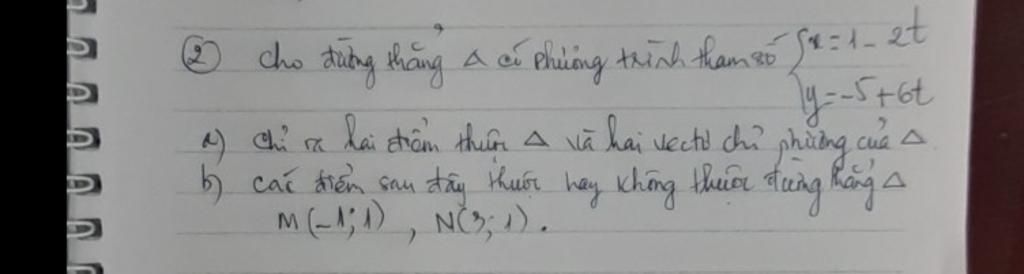 ② Cho đường thẳng Δ có phương trình tham số { x = 1 - 2t
y = -5 + 6t
a) Chỉ ra hai điểm thuộc Δ và hai vectơ chỉ phương của Δ.
b) Các điểm sau đây thuộc hay không thuộc đường thẳng Δ
M(-1; 1) , N(3; 1).